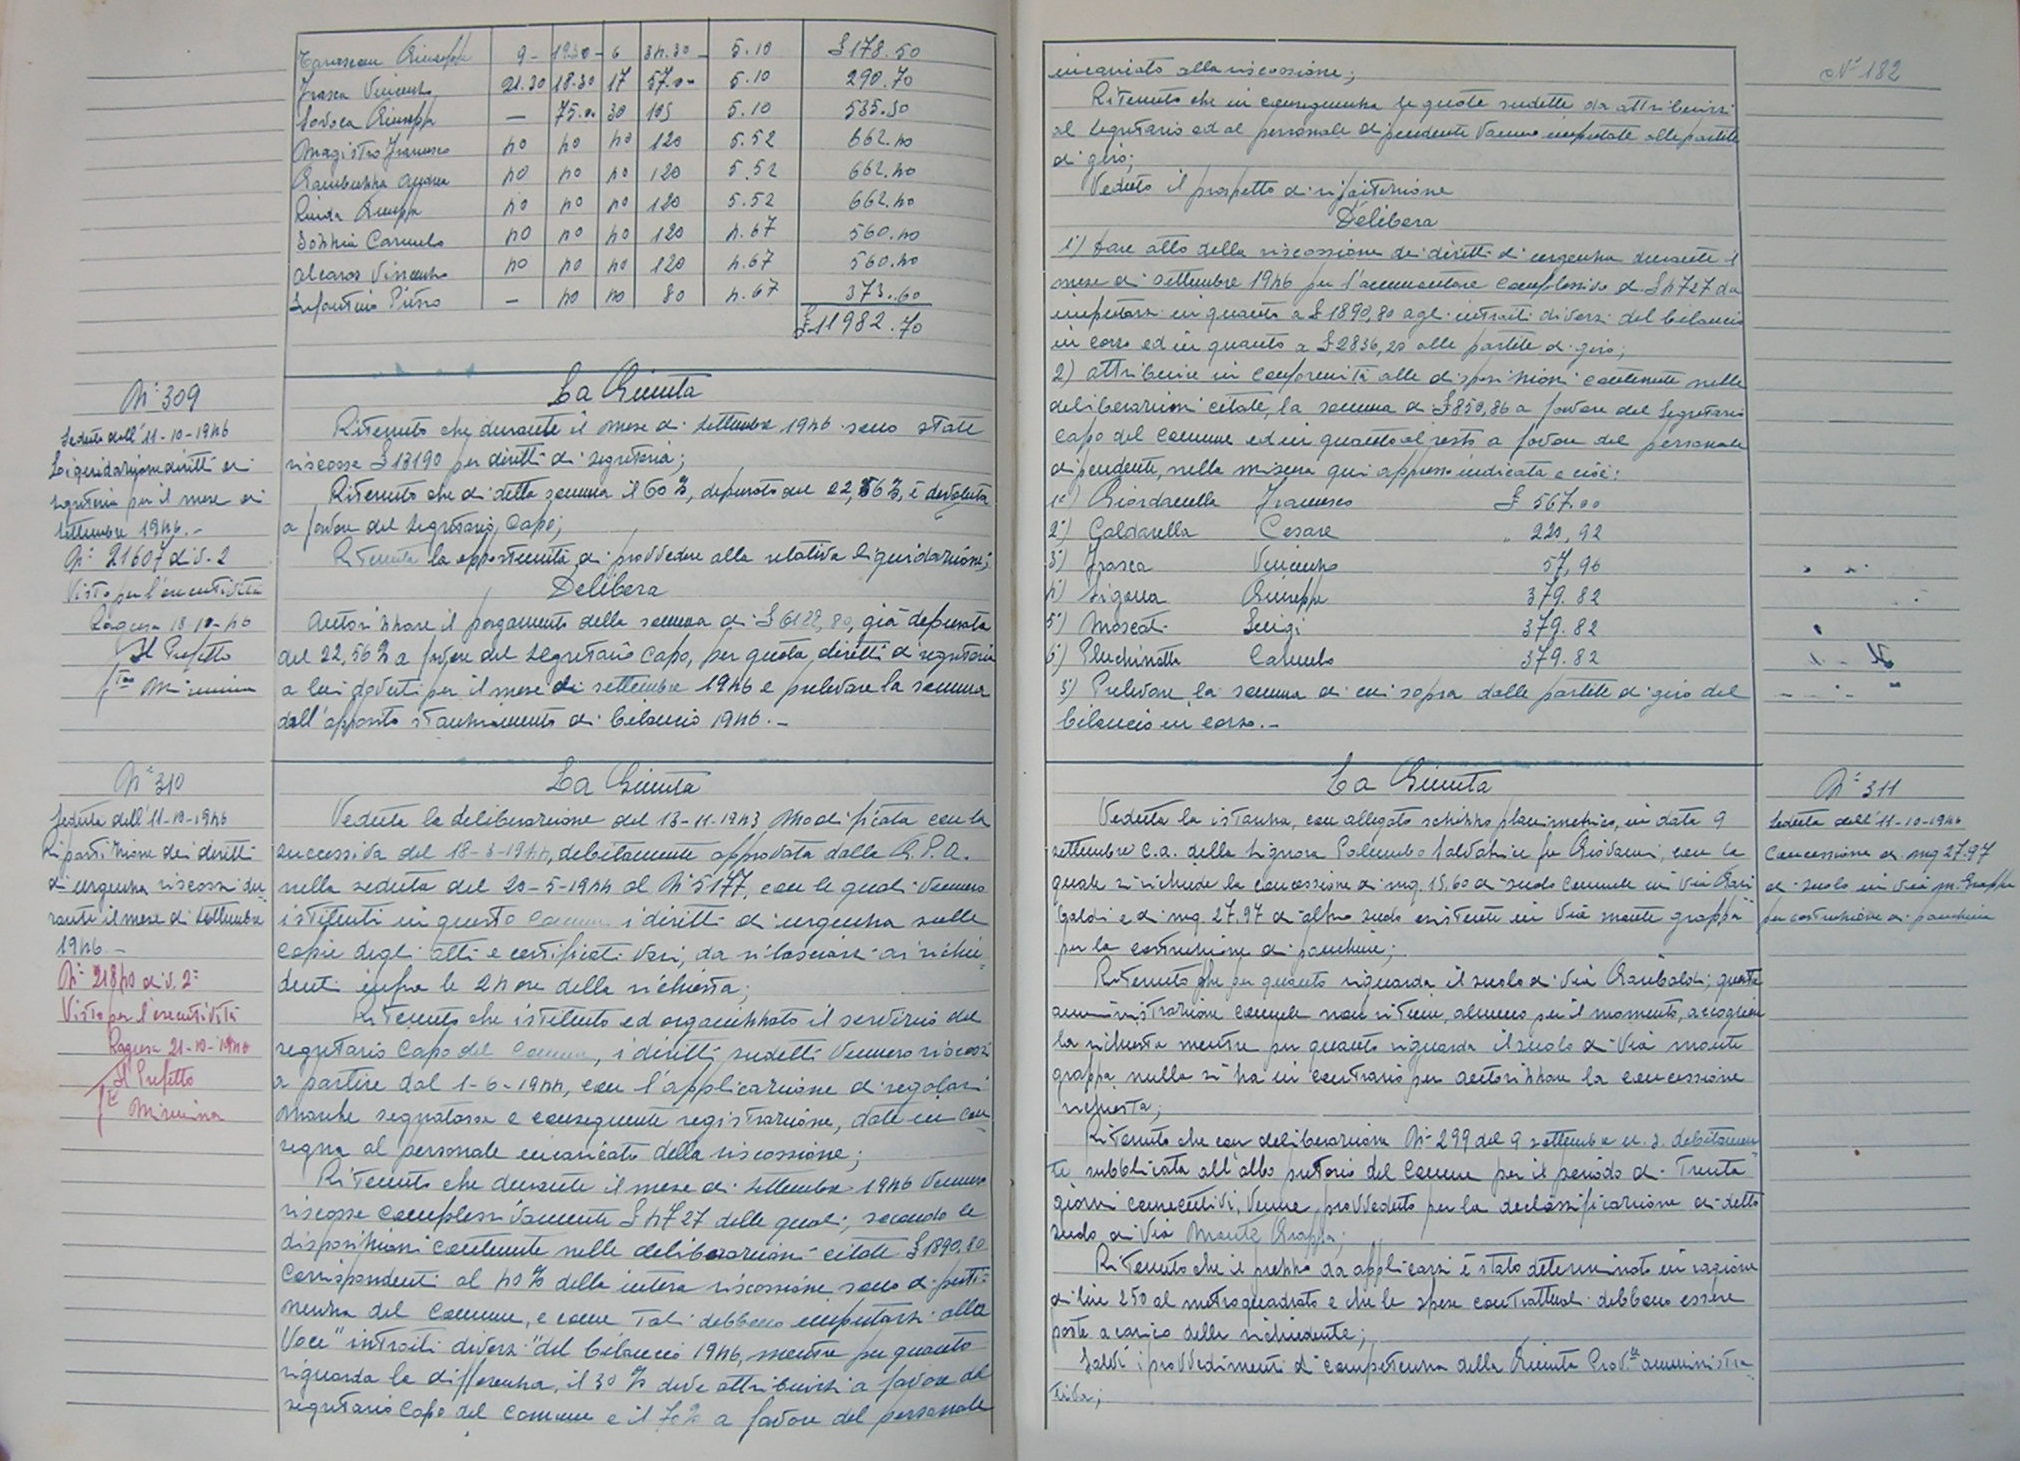 9 - 12.30 - 6 34.30 - 5.10 £ 178.50
Frasca Vincenzo 21.30 18.30 17 57.00 5.10 290.70
Giuseppe — 75.00 30 105 5.10 535.50
Magistro Francesco 40 40 40 120 5.52 662.40
Andrea 40 40 40 120 5.52 662.40
Giuseppe 40 40 40 120 5.52 662.40
Carmelo 40 40 40 120 4.67 560.40
Vincenzo 40 40 40 120 4.67 560.40
Pietro — 40 40 80 4.67 373.60
£ 11982.70
N° 309
Seduta dell'11-10-1946
Liquidazione diritti di
segreteria per il mese di
settembre 1946.-
N° 21607 div. 2
Visto per l'esecutività
Ragusa 18-10-46
Il Prefetto
La Giunta
Ritenuto che durante il mese di settembre 1946 sono state
riscosse £ 13190 per diritti di segreteria;
Ritenuto che di detta somma il 60%, depurato del 22,56%, è devoluta
a favore del Segretario Capo;
Ritenuta la opportunità di provvedere alla relativa liquidazione;
Delibera
Autorizzare il pagamento della somma di £ 6122,80, già depurata
del 22,56% a favore del Segretario Capo, per quota diritti di segreteria
a lui dovuti per il mese di settembre 1946 e prelevare la somma
dall'apposito stanziamento di bilancio 1946.-
N° 310
Seduta dell'11-10-1946
Ripartizione dei diritti
di urgenza riscossi du-
rante il mese di settembre
1946.-
N° 21840 div. 2ª
Visto per l'esecutività
Ragusa 21-10-1946
Il Prefetto
La Giunta
Veduta la deliberazione del 13-11-1943 modificata con la
successiva del 18-3-1944, debitamente approvata dalla G.P.A.
nella seduta del 20-5-1944 al N° 5177, con le quali vennero
istituiti in questo Comune i diritti di urgenza sulle
copie degli atti e certificati vari, da rilasciarsi ai richie-
denti infra le 24 ore della richiesta;
Ritenuto che istituito ed organizzato il servizio dal
segretario Capo del Comune, i diritti sudetti vennero riscossi
a partire dal 1-6-1944, con l'applicazione di regolari
marche segnatasse e conseguente registrazione, date in con-
segna al personale incaricato della riscossione;
Ritenuto che durante il mese di settembre 1946 vennero
riscosse complessivamente £ 4727 delle quali, secondo le
disposizioni contenute nelle deliberazioni citate £ 1890,80
corrispondenti al 40% della intera riscossione sono di perti-
nenza del Comune, e come tali debbono imputarsi alla
voce "introiti diversi" del bilancio 1946, mentre per quanto
riguarda la differenza, il 30% deve attribuirsi a favore del
segretario Capo del Comune e il 70% a favore del personale
N° 182
incaricato alla riscossione;
Ritenuto che in conseguenza le quote sudette da attribuirsi
al segretario ed al personale dipendente vanno imputate alle partite
di giro;
Veduto il prospetto di ripartizione
Delibera
1°) Dare atto della riscossione dei diritti di urgenza durante il
mese di settembre 1946 per l'ammontare complessivo di £ 4727 da
imputarsi in quanto a £ 1890,80 agli introiti diversi del bilancio
in corso ed in quanto a £ 2836,20 alle partite di giro;
2) attribuire in conformità alle disposizioni contenute nelle
deliberazioni citate, la somma di £ 850,86 a favore del Segretario
Capo del Comune ed in quanto al resto a favore del personale
dipendente, nella misura qui appresso indicata e cioè:
1°) Giordanella Francesco £ 567.00
2°) Caldarella Cesare " 220,92
3°) Frasca Vincenzo 57,96
4°) Giuseppe 379.82
5°) Moscati Luigi 379.82
6°) Pluchinotta Carmelo 379.82
3°) Prelevare la somma di cui sopra dalle partite di giro del
bilancio in corso.-
La Giunta
Veduta la istanza, con allegato schizzo planimetrico, in data 9
settembre c.a. della Signora Palumbo Salvatrice fu Giovanni, con la
quale si richiede la concessione di mq. 15,60 di suolo comunale in Via Gari-
baldi e di mq. 27,97 di altro suolo esistente in Via Monte Grappa
per la costruzione di panchine;
Ritenuto che per quanto riguarda il suolo di Via Garibaldi, questa
amministrazione comunale non ritiene, almeno per il momento, accogliere
la richiesta mentre per quanto riguarda il suolo di Via Monte
Grappa nulla si ha in contrario per autorizzare la concessione
richiesta;
Ritenuto che con deliberazione N° 299 del 9 settembre u.s. debitamen-
te pubblicata all'albo pretorio del Comune per il periodo di trenta
giorni consecutivi, venne provveduto per la declassificazione di detto
suolo di Via Monte Grappa;
Ritenuto che il prezzo da applicarsi è stato determinato in ragione
di lire 250 al metro quadrato e che le spese contrattuali debbono essere
poste a carico della richiedente;
Salvi i provvedimenti di competenza della Giunta Prov.le amministra-
tiva;
N° 311
Seduta dell'11-10-1946
Concessione di mq 27.97
di suolo in via M. Grappa
per costruzione di panchine